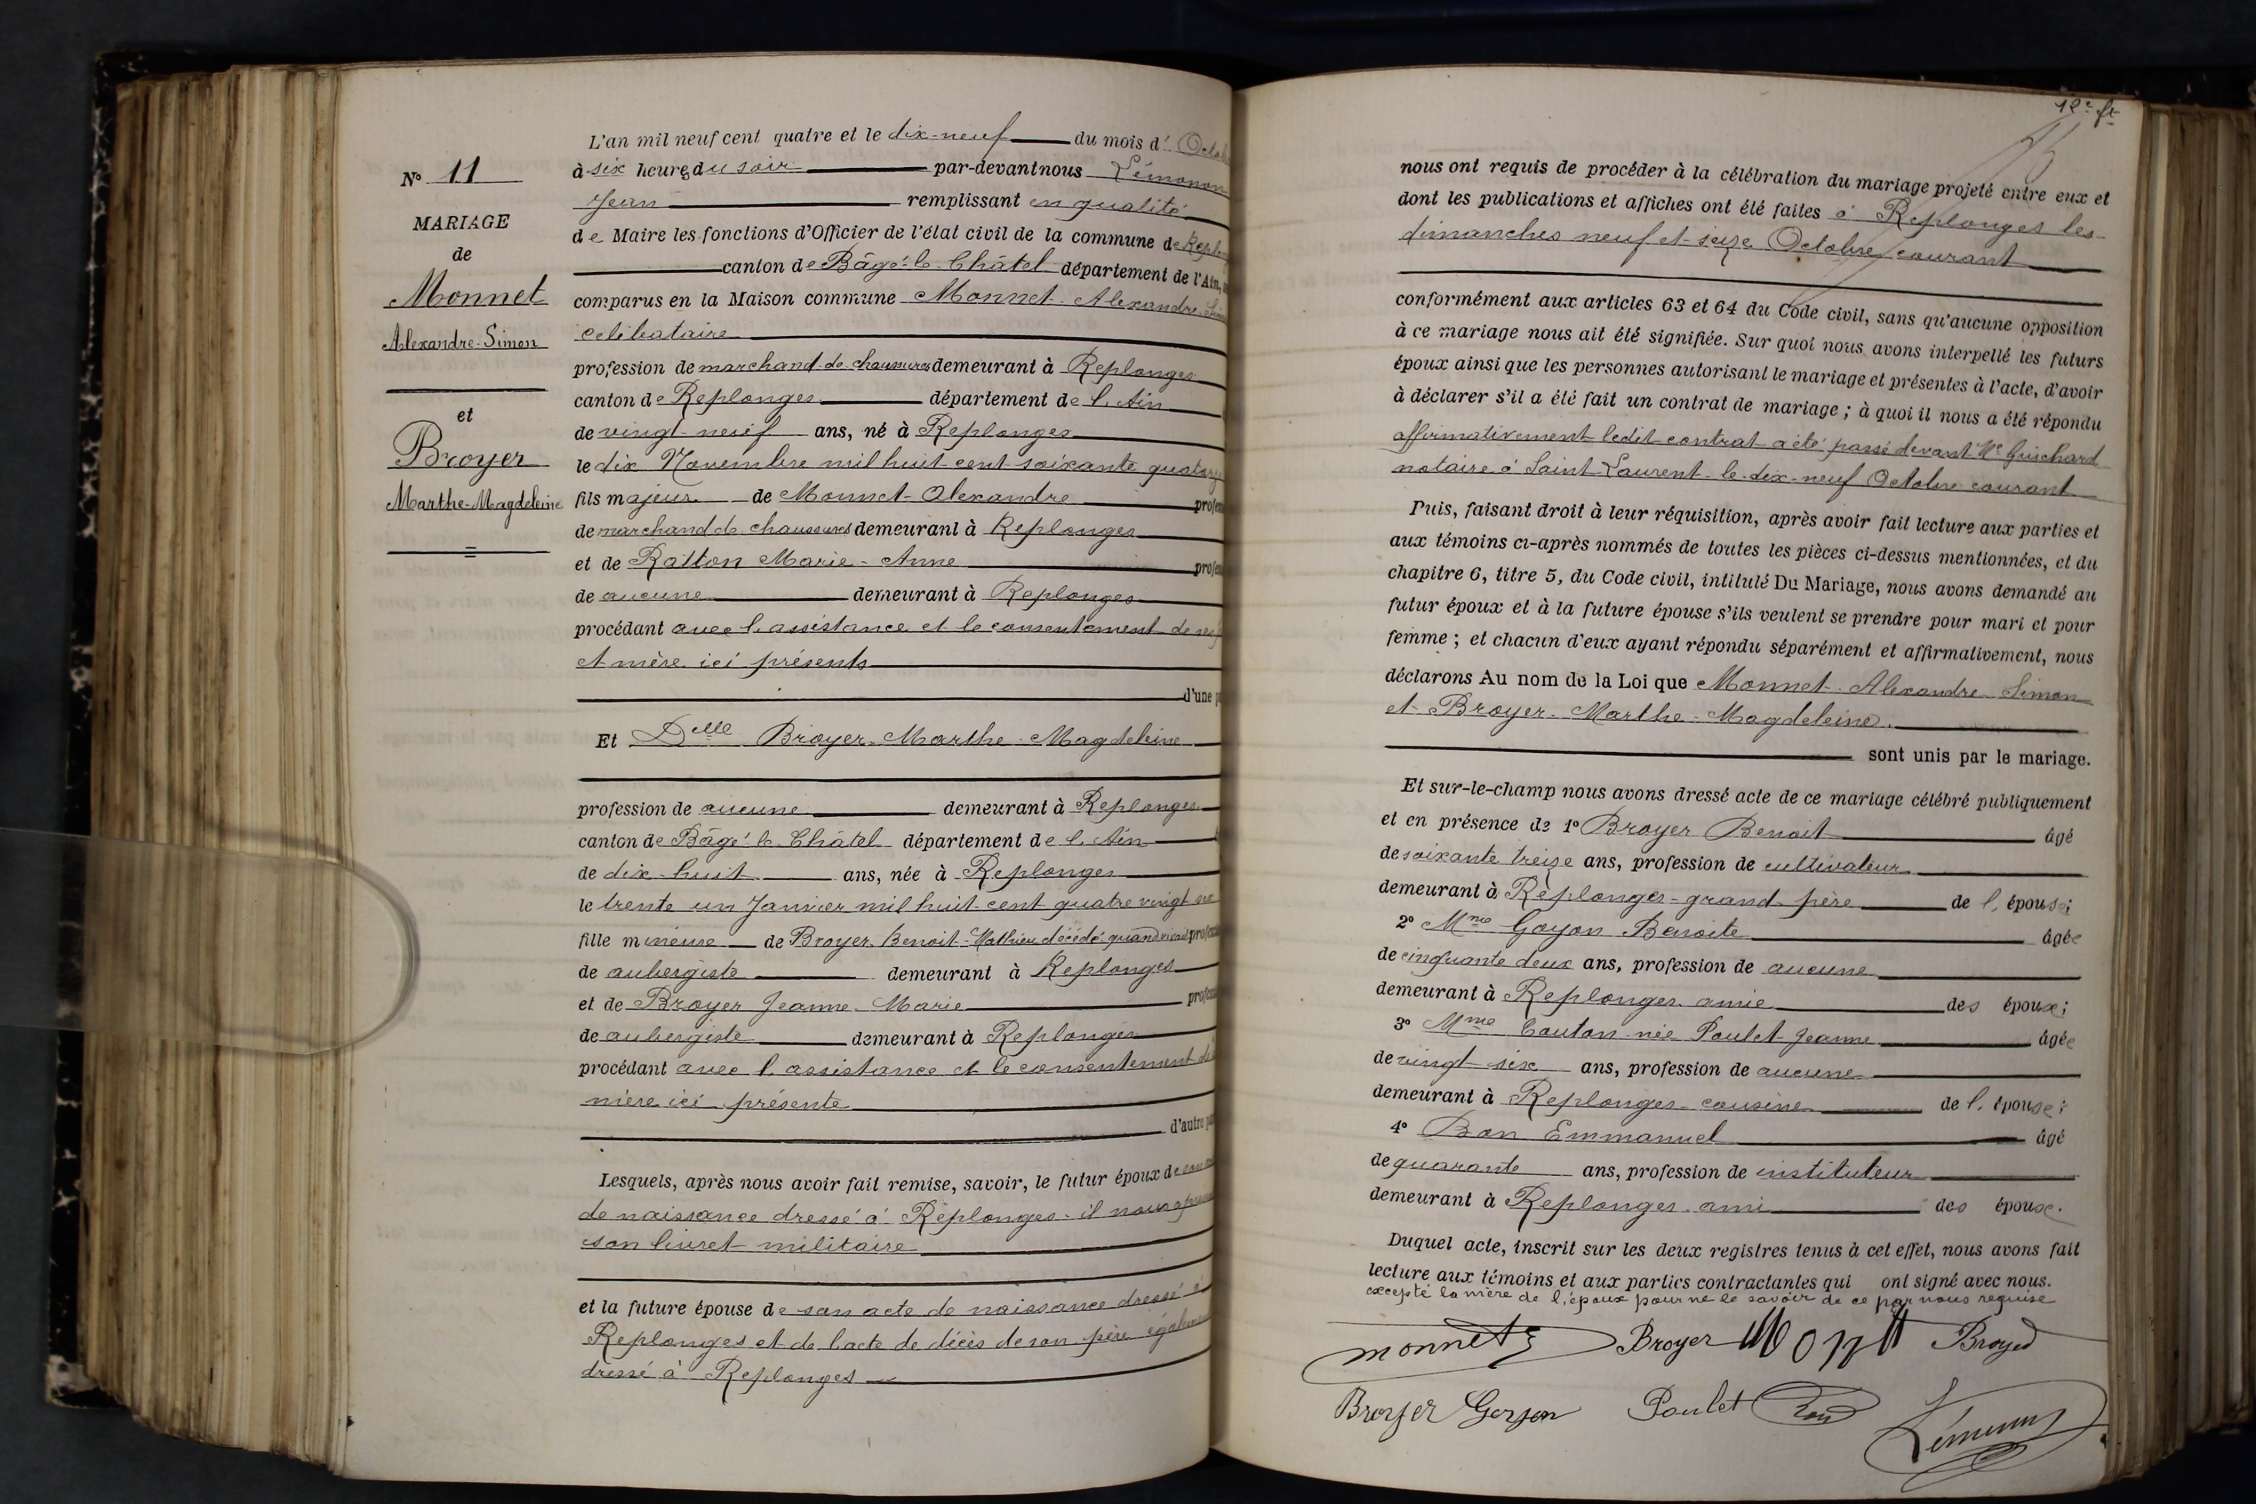 N° 11
MARIAGE
de
Monnet
Alexandre-Simon
et
Broyer
Marthe-Magdeleine
L'an mil neuf cent quatre et le dix-neuf du mois d' Octob
à six heures du soir par-devant nous Lémonon
Jean remplissant en qualité
de Maire les fonctions d'Officier de l'état civil de la commune de Replon
canton de Bâgé-le-Châtel département de l'Ain,
comparus en la Maison commune Monnet Alexandre Sim
célibataire
profession de marchand de chaussures demeurant à Replonges
canton de Replonges département de l'Ain
de vingt-neuf ans, né à Replonges
le dix Novembre mil huit cent soixante quatorze
fils majeur de Monnet Alexandre profes
de marchand de chaussures demeurant à Replonges
et de Ratton Marie-Anne profes
de aucune demeurant à Replonges
procédant avec l'assistance et le consentement de ses
et mère ici présents
d'une p
Et Delle Broyer Marthe Magdeleine
profession de aucune demeurant à Replonges
canton de Bâgé-le-Châtel département de l'Ain
de dix-huit ans, née à Replonges
le trente un Janvier mil huit cent quatre vingt
fille mineure de Broyer Benoit-Mathieu décédé quand vivait profes
de aubergiste demeurant à Replonges
et de Broyer Jeanne Marie profes
de aubergiste demeurant à Replonges
procédant avec l'assistance et le consentement de
mère ici présente
d'autre pa
Lesquels, après nous avoir fait remise, savoir, le futur époux de
de naissance dressé à Replonges. il nous a
son livret militaire
et la future épouse de son acte de naissance dressé à
Replonges et de l'acte de décès de son père égalem
dressé à Replonges
12e ft
nous ont requis de procéder à la célébration du mariage projeté entre eux et
dont les publications et affiches ont été faites à Replonges les
dimanches neuf et seize Octobre courant
conformément aux articles 63 et 64 du Code civil, sans qu'aucune opposition
à ce mariage nous ait été signifiée. Sur quoi nous avons interpellé les futurs
époux ainsi que les personnes autorisant le mariage et présentes à l'acte, d'avoir
à déclarer s'il a été fait un contrat de mariage ; à quoi il nous a été répondu
affirmativement ledit contrat a été passé devant Me Guichard
notaire à Saint Laurent le dix-neuf Octobre courant
Puis, faisant droit à leur réquisition, après avoir fait lecture aux parties et
aux témoins ci-après nommés de toutes les pièces ci-dessus mentionnées, et du
chapitre 6, titre 5, du Code civil, intitulé Du Mariage, nous avons demandé au
futur époux et à la future épouse s'ils veulent se prendre pour mari et pour
femme ; et chacun d'eux ayant répondu séparément et affirmativement, nous
déclarons Au nom de la Loi que Monnet Alexandre Simon
et Broyer Marthe Magdeleine.
sont unis par le mariage.
Et sur-le-champ nous avons dressé acte de ce mariage célébré publiquement
et en présence de 1° Broyer Benoit âgé
de soixante treize ans, profession de cultivateur
demeurant à Replonges grand-père de l'épouse;
2° Mme Goyon Benoite âgée
de cinquante deux ans, profession de aucune
demeurant à Replonges amie des époux;
3° Mme Couton née Poulet Jeanne âgée
de vingt six ans, profession de aucune
demeurant à Replonges cousine de l'épouse;
4° Bon Emmanuel âgé
de quarante ans, profession de instituteur
demeurant à Replonges ami des époux.
Duquel acte, inscrit sur les deux registres tenus à cet effet, nous avons fait
lecture aux témoins et aux parties contractantes qui ont signé avec nous.
excepté la mère de l'époux pour ne le savoir de ce par nous requise
monnet Broyer Monnet Broyer
Broyer Goyon Poulet Bon Lémonon